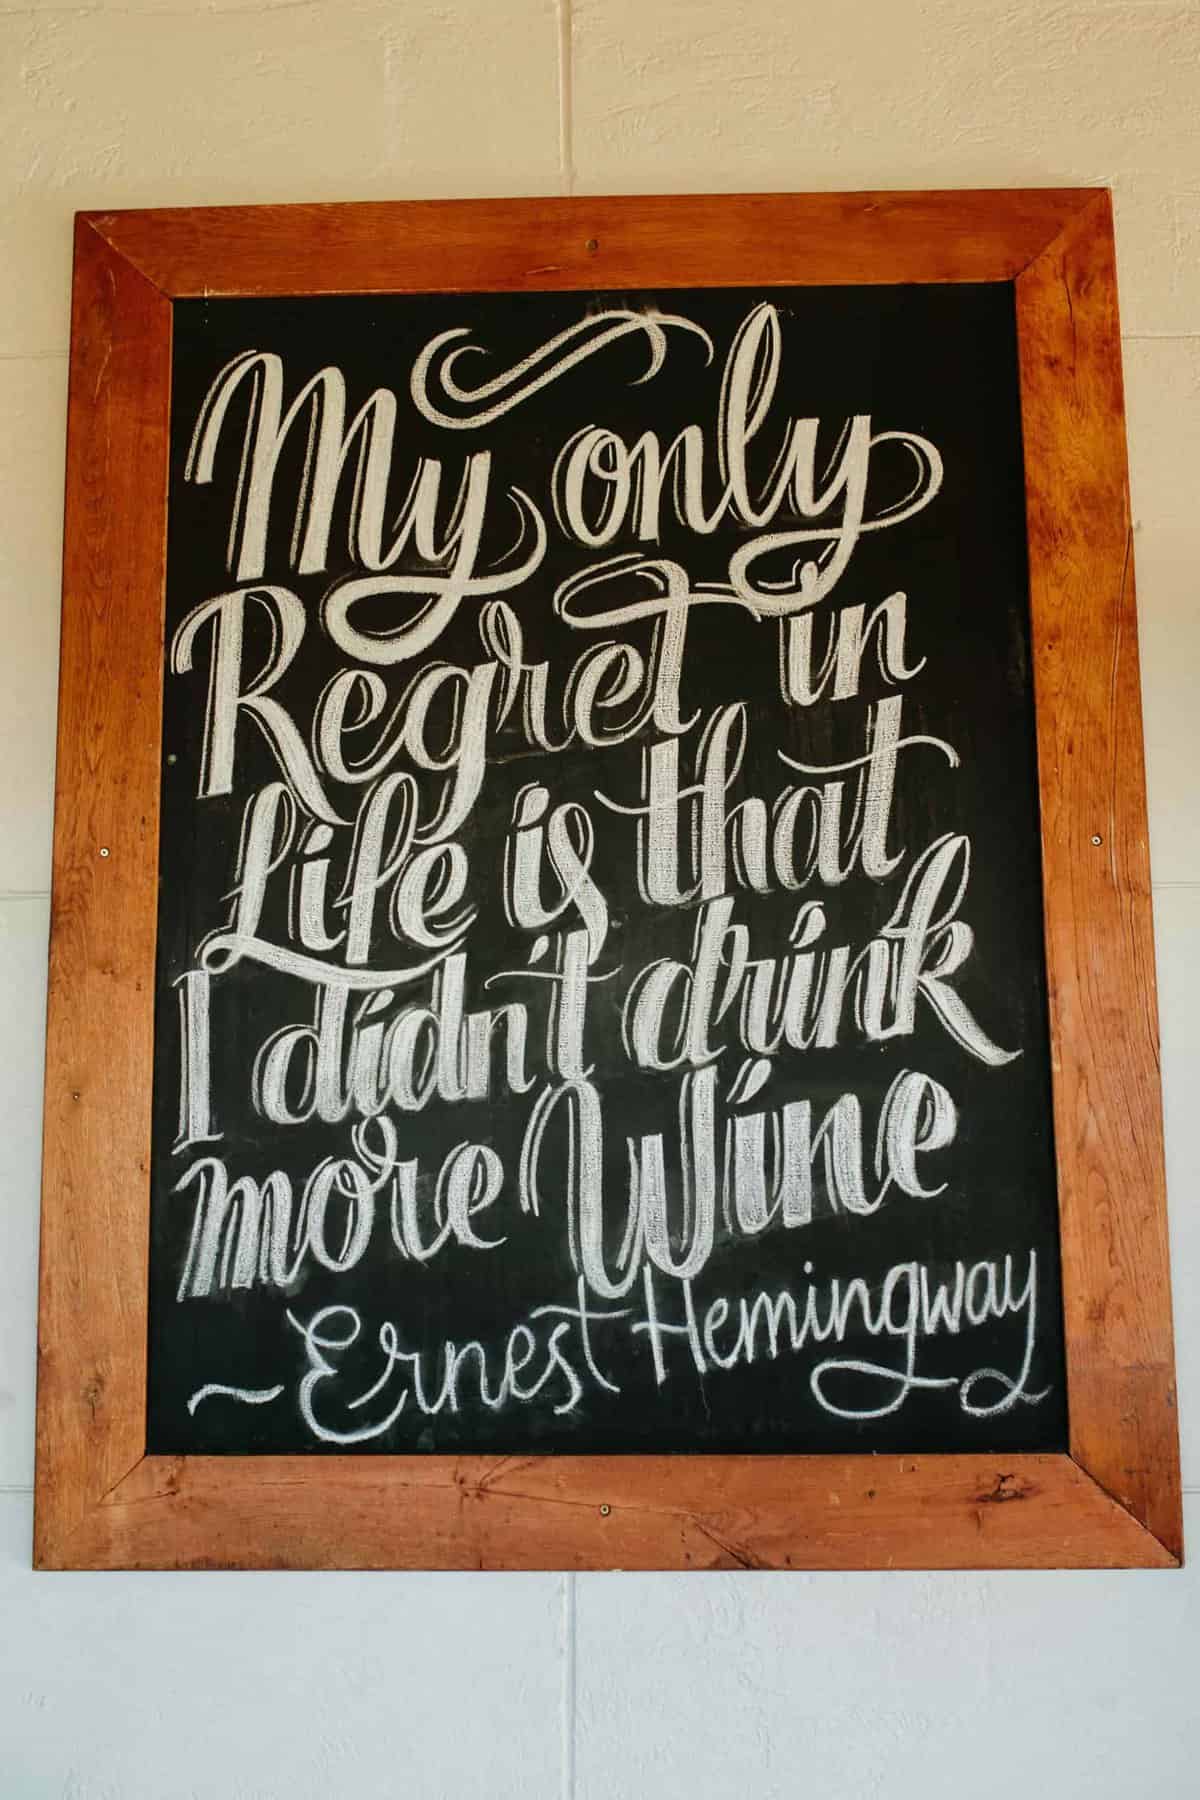 My only
Regret in
Life is that
I didn't drink
more Wine
~Ernest Hemingway